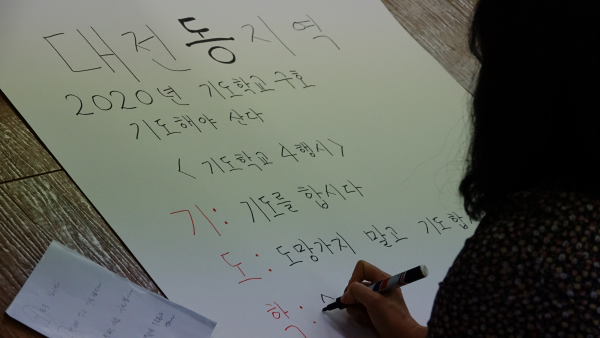 대전동지역
2020년 기도학교 구호
기도해야 산다
< 기도학교 4행시 >
기: 기도를 합시다
도: 도망가지 말고 기도합
학: